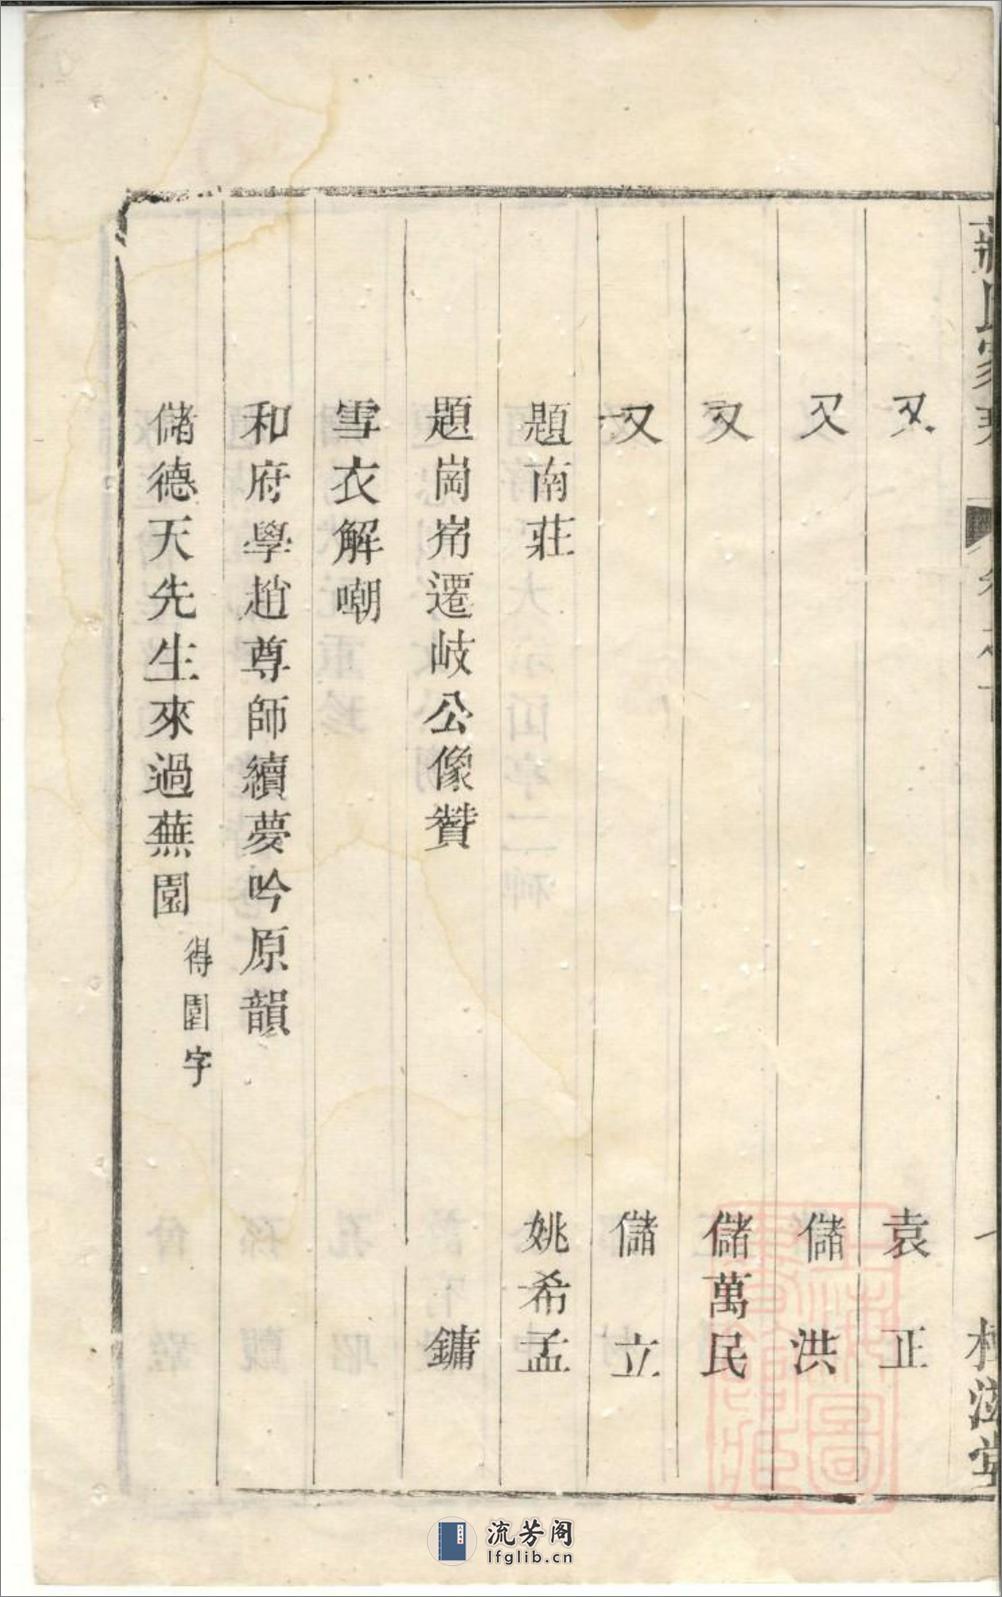 又 袁正
又 儲洪
又 儲萬民
又 儲立
題南莊 姚希孟
題崗㡳遷岐公像贊 鏞
雪衣解嘲
和府學趙尊師續夢吟原韻
儲德天先生來過蕪園 得園字
流芳阁
lfglib.cn